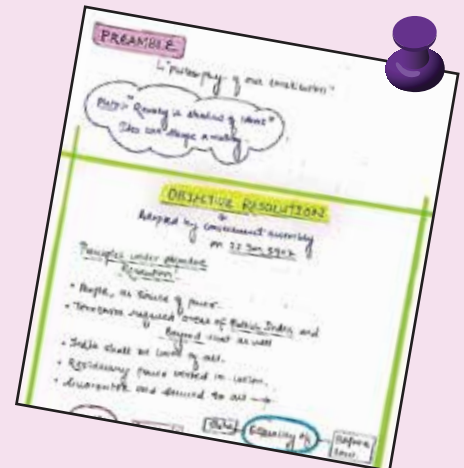 PREAMBLE
"philosophy of our constitution"
Plato: "Reality is shadow of ideas"
Idea can shape a reality
OBJECTIVE RESOLUTION
Adopted by constituent assembly
on 22 Jan,
Principles under objective
Resolution:
• People, as source of power
• Territories areas of British India and
Beyond that as well
• India shall be of all.
• Residuary power vested in union.
• Guarantee and secured to all →
Equality of
Before
law